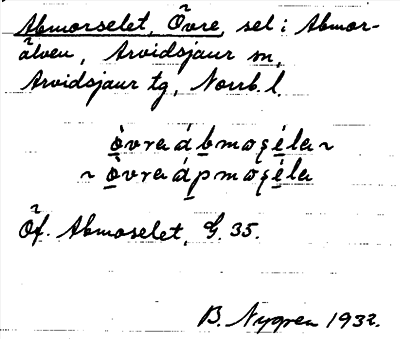 Abmorselet, Övre, sel i Abmor-
älven, Arvidsjaur sn,
Arvidsjaur tg, Norrb. l.
òvra ábmoçéla ~
~ òvra ápmoçéla
Öf. Abmoselet, G. 35.
B. Nygren 1932.